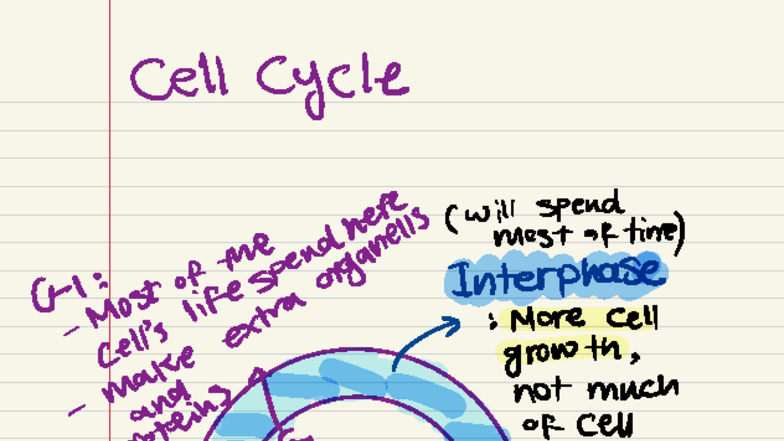 Cell Cycle
(will spend
most of time)
Interphase
: More cell
growth,
not much
of cell
G1:
- Most of the
cell's life spend here
- make extra organells
and
proteins